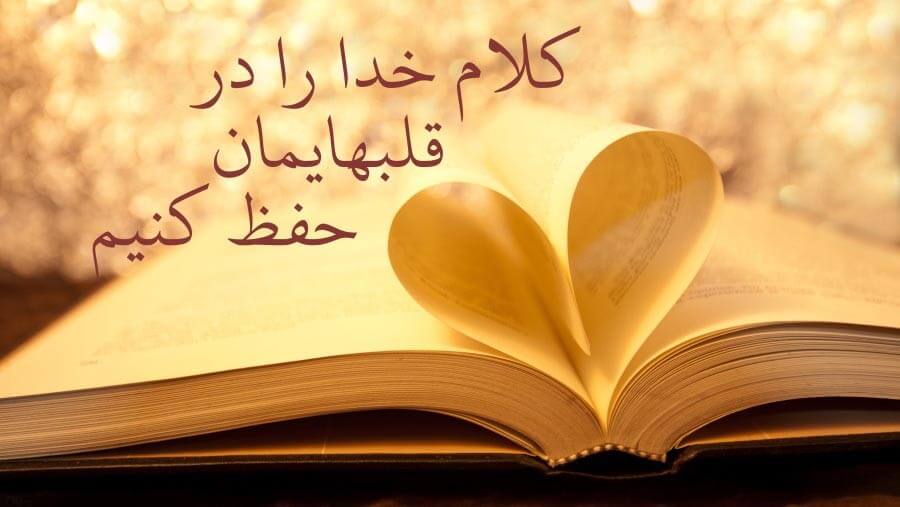 کلام خدا را در
قلبهایمان
حفظ کنیم